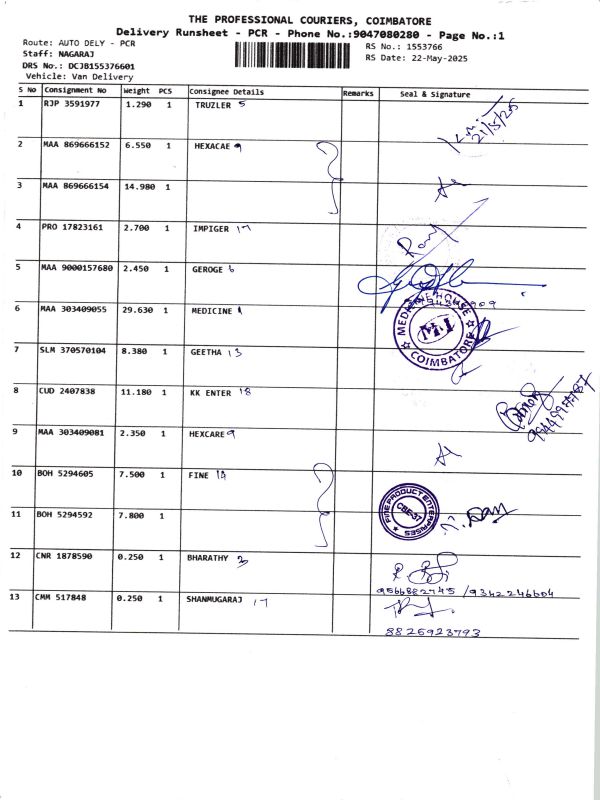 THE PROFESSIONAL COURIERS, COIMBATORE
Delivery Runsheet - PCR - Phone No.:9047080280 - Page No.:1
Route: AUTO DELY - PCR
RS No.: 1553766
Staff: NAGARAJ
RS Date: 22-May-2025
DRS No.: DCJB155376601
Vehicle: Van Delivery
S No Consignment No Weight PCS Consignee Details Remarks Seal & Signature
1 RJP 3591977 1.290 1 TRUZLER 5
21/5/25
2 MAA 869666152 6.550 1 HEXACAE 9
3 MAA 869666154 14.980 1
4 PRO 17823161 2.700 1 IMPIGER 17
5 MAA 9000157680 2.450 1 GEROGE 6
6 MAA 303409055 29.630 1 MEDICINE 1
MEDICINE HOUSE
M.H
COIMBATORE
7 SLM 370570104 8.380 1 GEETHA 13
8 CUD 2407838 11.180 1 KK ENTER 18
9 MAA 303409081 2.350 1 HEXCARE 9
10 BOH 5294605 7.500 1 FINE 14
FINE PRODUCT ENTERPRISES
CBE-37
11 BOH 5294592 7.800 1
12 CNR 1878590 0.250 1 BHARATHY 3
9566882745 /9342246604
13 CMM 517848 0.250 1 SHANMUGARAJ 17
8825923793